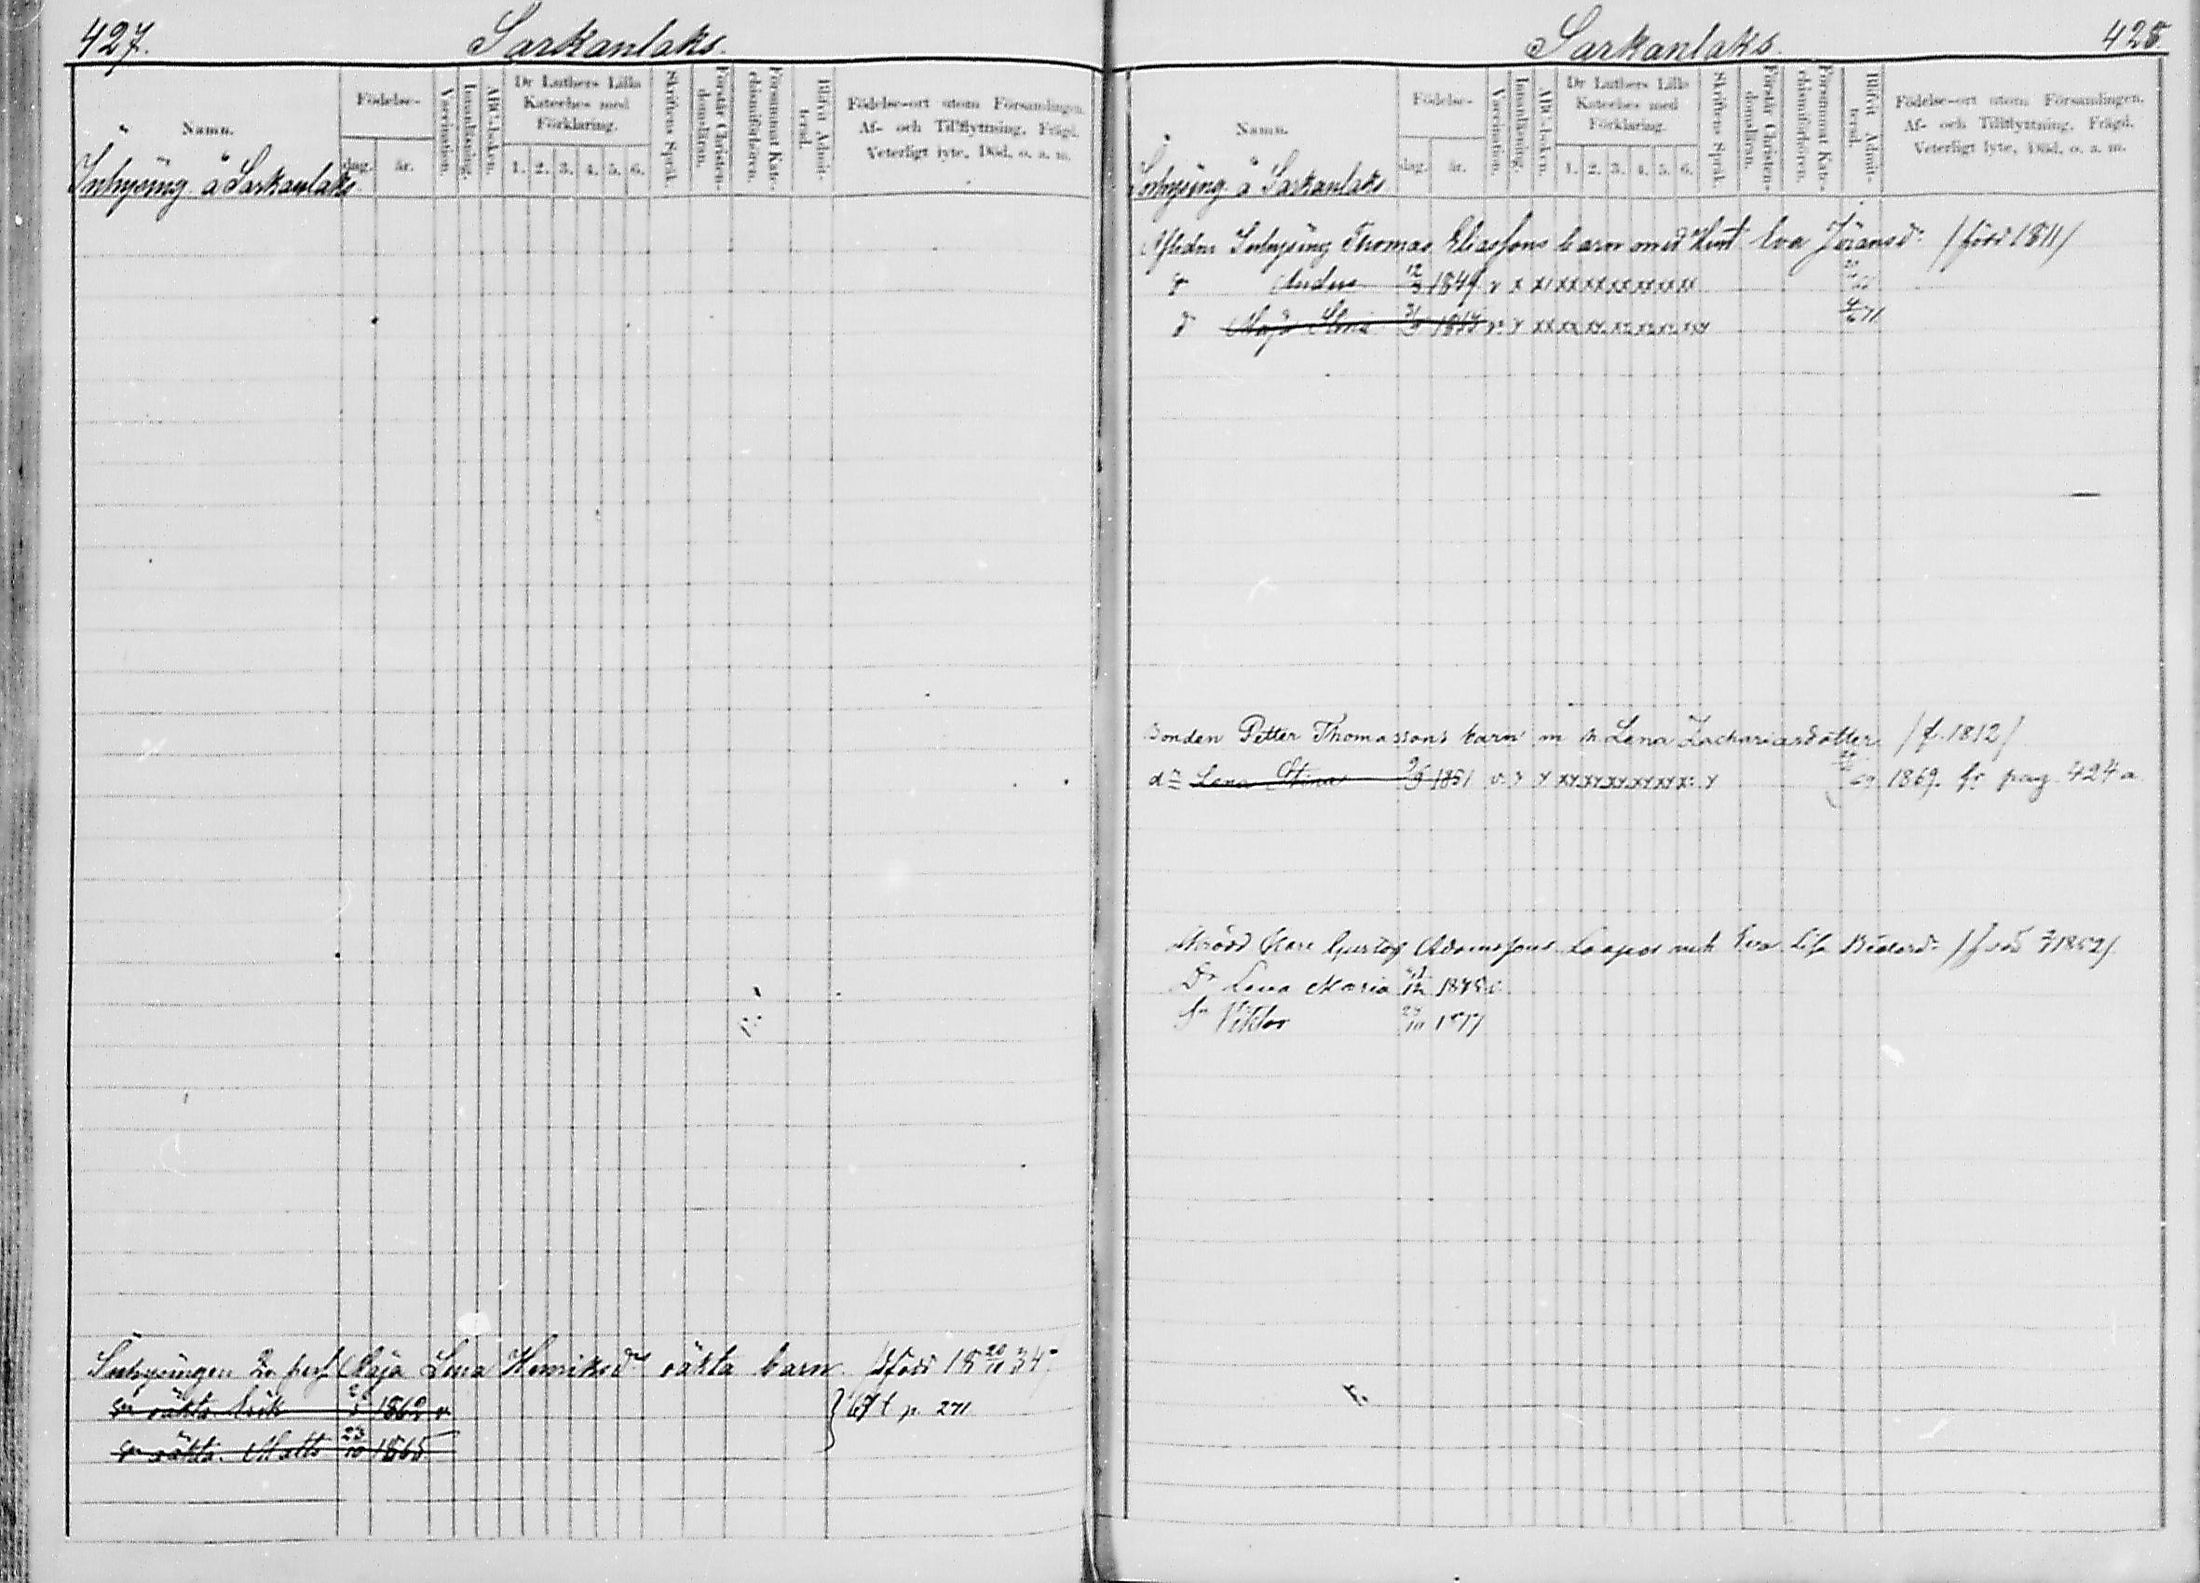 427.
Sarkanlaks.
Namn.
Födelse-
dag.
år.
Vaccination.
Innanläsning.
ABC-boken.
Dr Luthers Lilla
Kateches med
Förklaring.
1. 2. 3. 4. 5. 6.
Skriftens Språk.
Förstår Christen-
domsläran.
Försummat Kate-
chismiförhören.
Blifvit Admit-
terad.
Födelse-ort utom Församlingen.
Af- och Tillflyttning. Frägd.
Veterligt lyte, Död, o. a. m.
Inhysing å Sarkanlaks
Inhysingen Maja Lena Henriksdr oäkta barn. född 18 20/10 34
Sn oäkta Erik 1862 v
Sn oäkta Matts 23/10 1865
67 t p. 271
Sarkanlaks.
428
Namn.
Födelse-
dag.
år.
Vaccination.
Innanläsning.
ABC-boken.
Dr Luthers Lilla
Kateches med
Förklaring.
1. 2. 3. 4. 5. 6.
Skriftens Språk.
Förstår Christen-
domsläran.
Försummat Kate-
chismiförhören.
Blifvit Admit-
terad.
Födelse-ort utom Församlingen.
Af- och Tillflyttning. Frägd.
Veterligt lyte, Död, o. a. m.
Inhysing å Sarkanlaks
Afledne Inhysing Thomas Eliassons barn med Eva Jöransdr /född 1811/
Anders 1849 v x
d Maja v x 71
Bonden Petter Thomassons barn m h Lena Zachariasdotter /f. 1812/
dr Lena Stina 1851 v. 69 1869. fr pag. 424 a
Gustaf Adamsson och Eva Lisa /född 1852/
Dr Lena Maria
Sn Viktor 10 1877